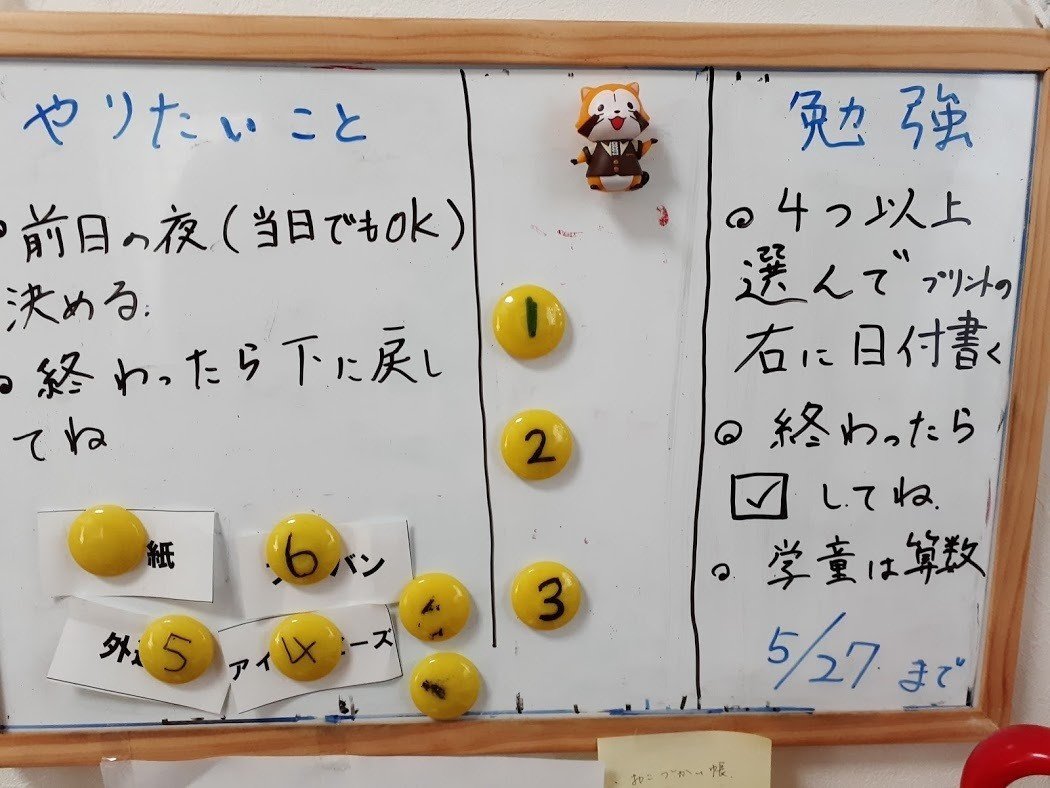 やりたいこと
前日の夜(当日でもOK)
決める.
終わったら下に戻し
てね
紙
6
バン
外
5
アイ
4
ーズ
1
2
3
勉強
4つ以上
選んでプリントの
右に日付書く
終わったら
☑してね.
学童は算数
5/27まで
おこづかい帳